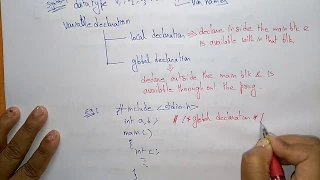 data type
Var names
Variable declaration
local declaration ⇒ declare inside the main blk &
is available with in that blk.
global declaration
⇒ declare outside the main blk & is
available through out the prog.
eg: # include <stdio.h>
int a, b; // (* global declaration * /
main ( )
{
int c;